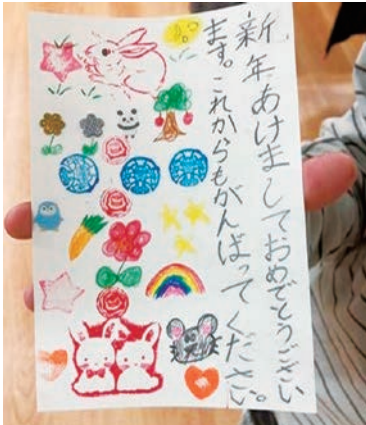 新年あけましておめでとうござい
ます。これからもがんばってください。